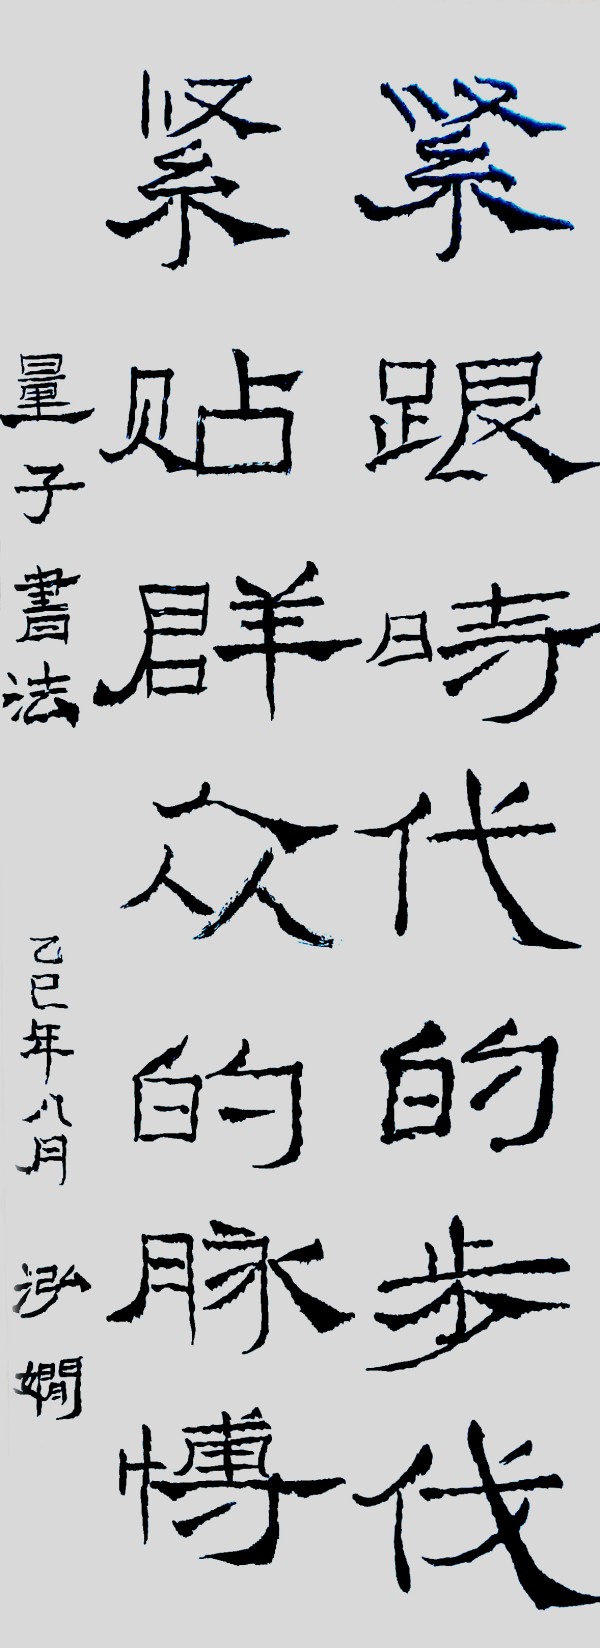 紧跟時代的步伐
紧贴群众的脉愽
量子書法 乙巳年八月 泓嫺